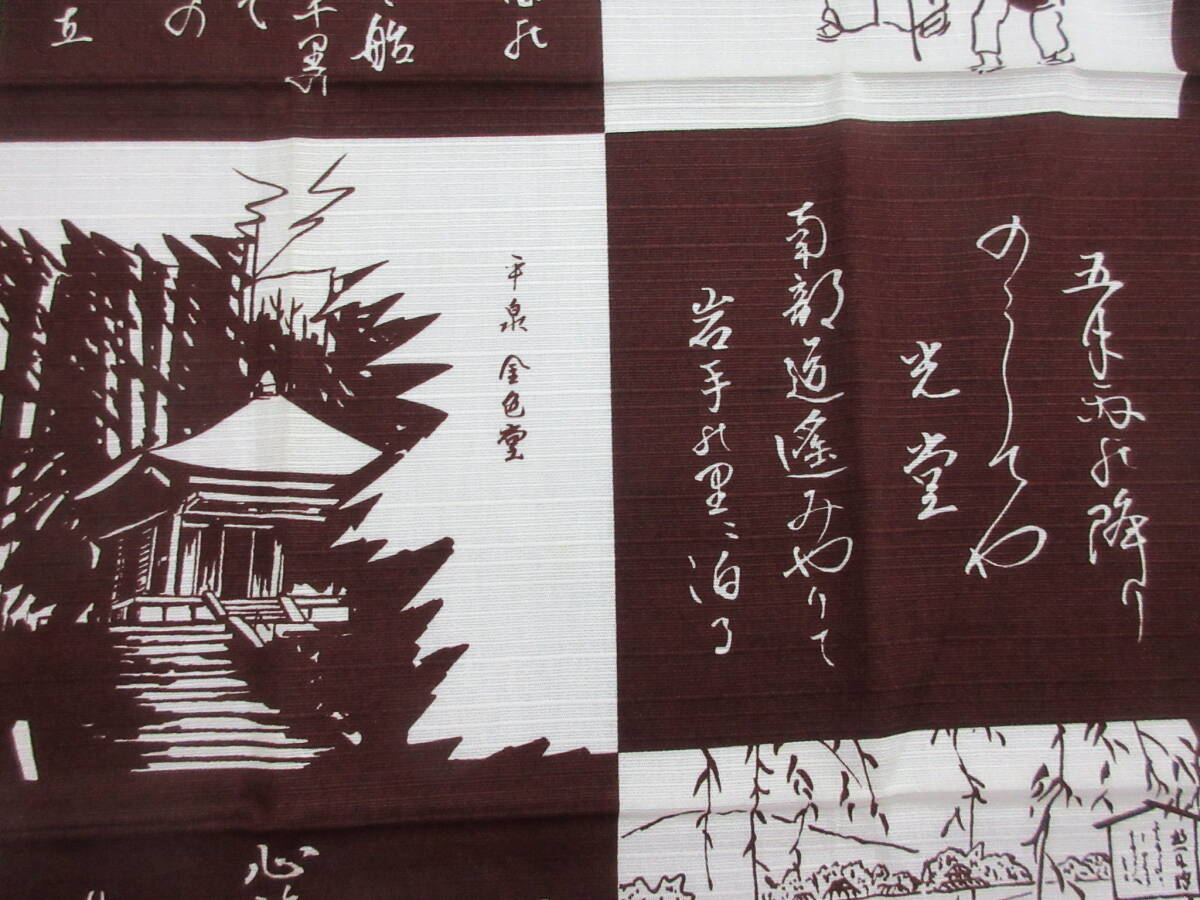 五月雨の降り
のこしてや
光堂
南部道遙みやりて
岩手の里ニ泊る
平泉 金色堂
船
立
心